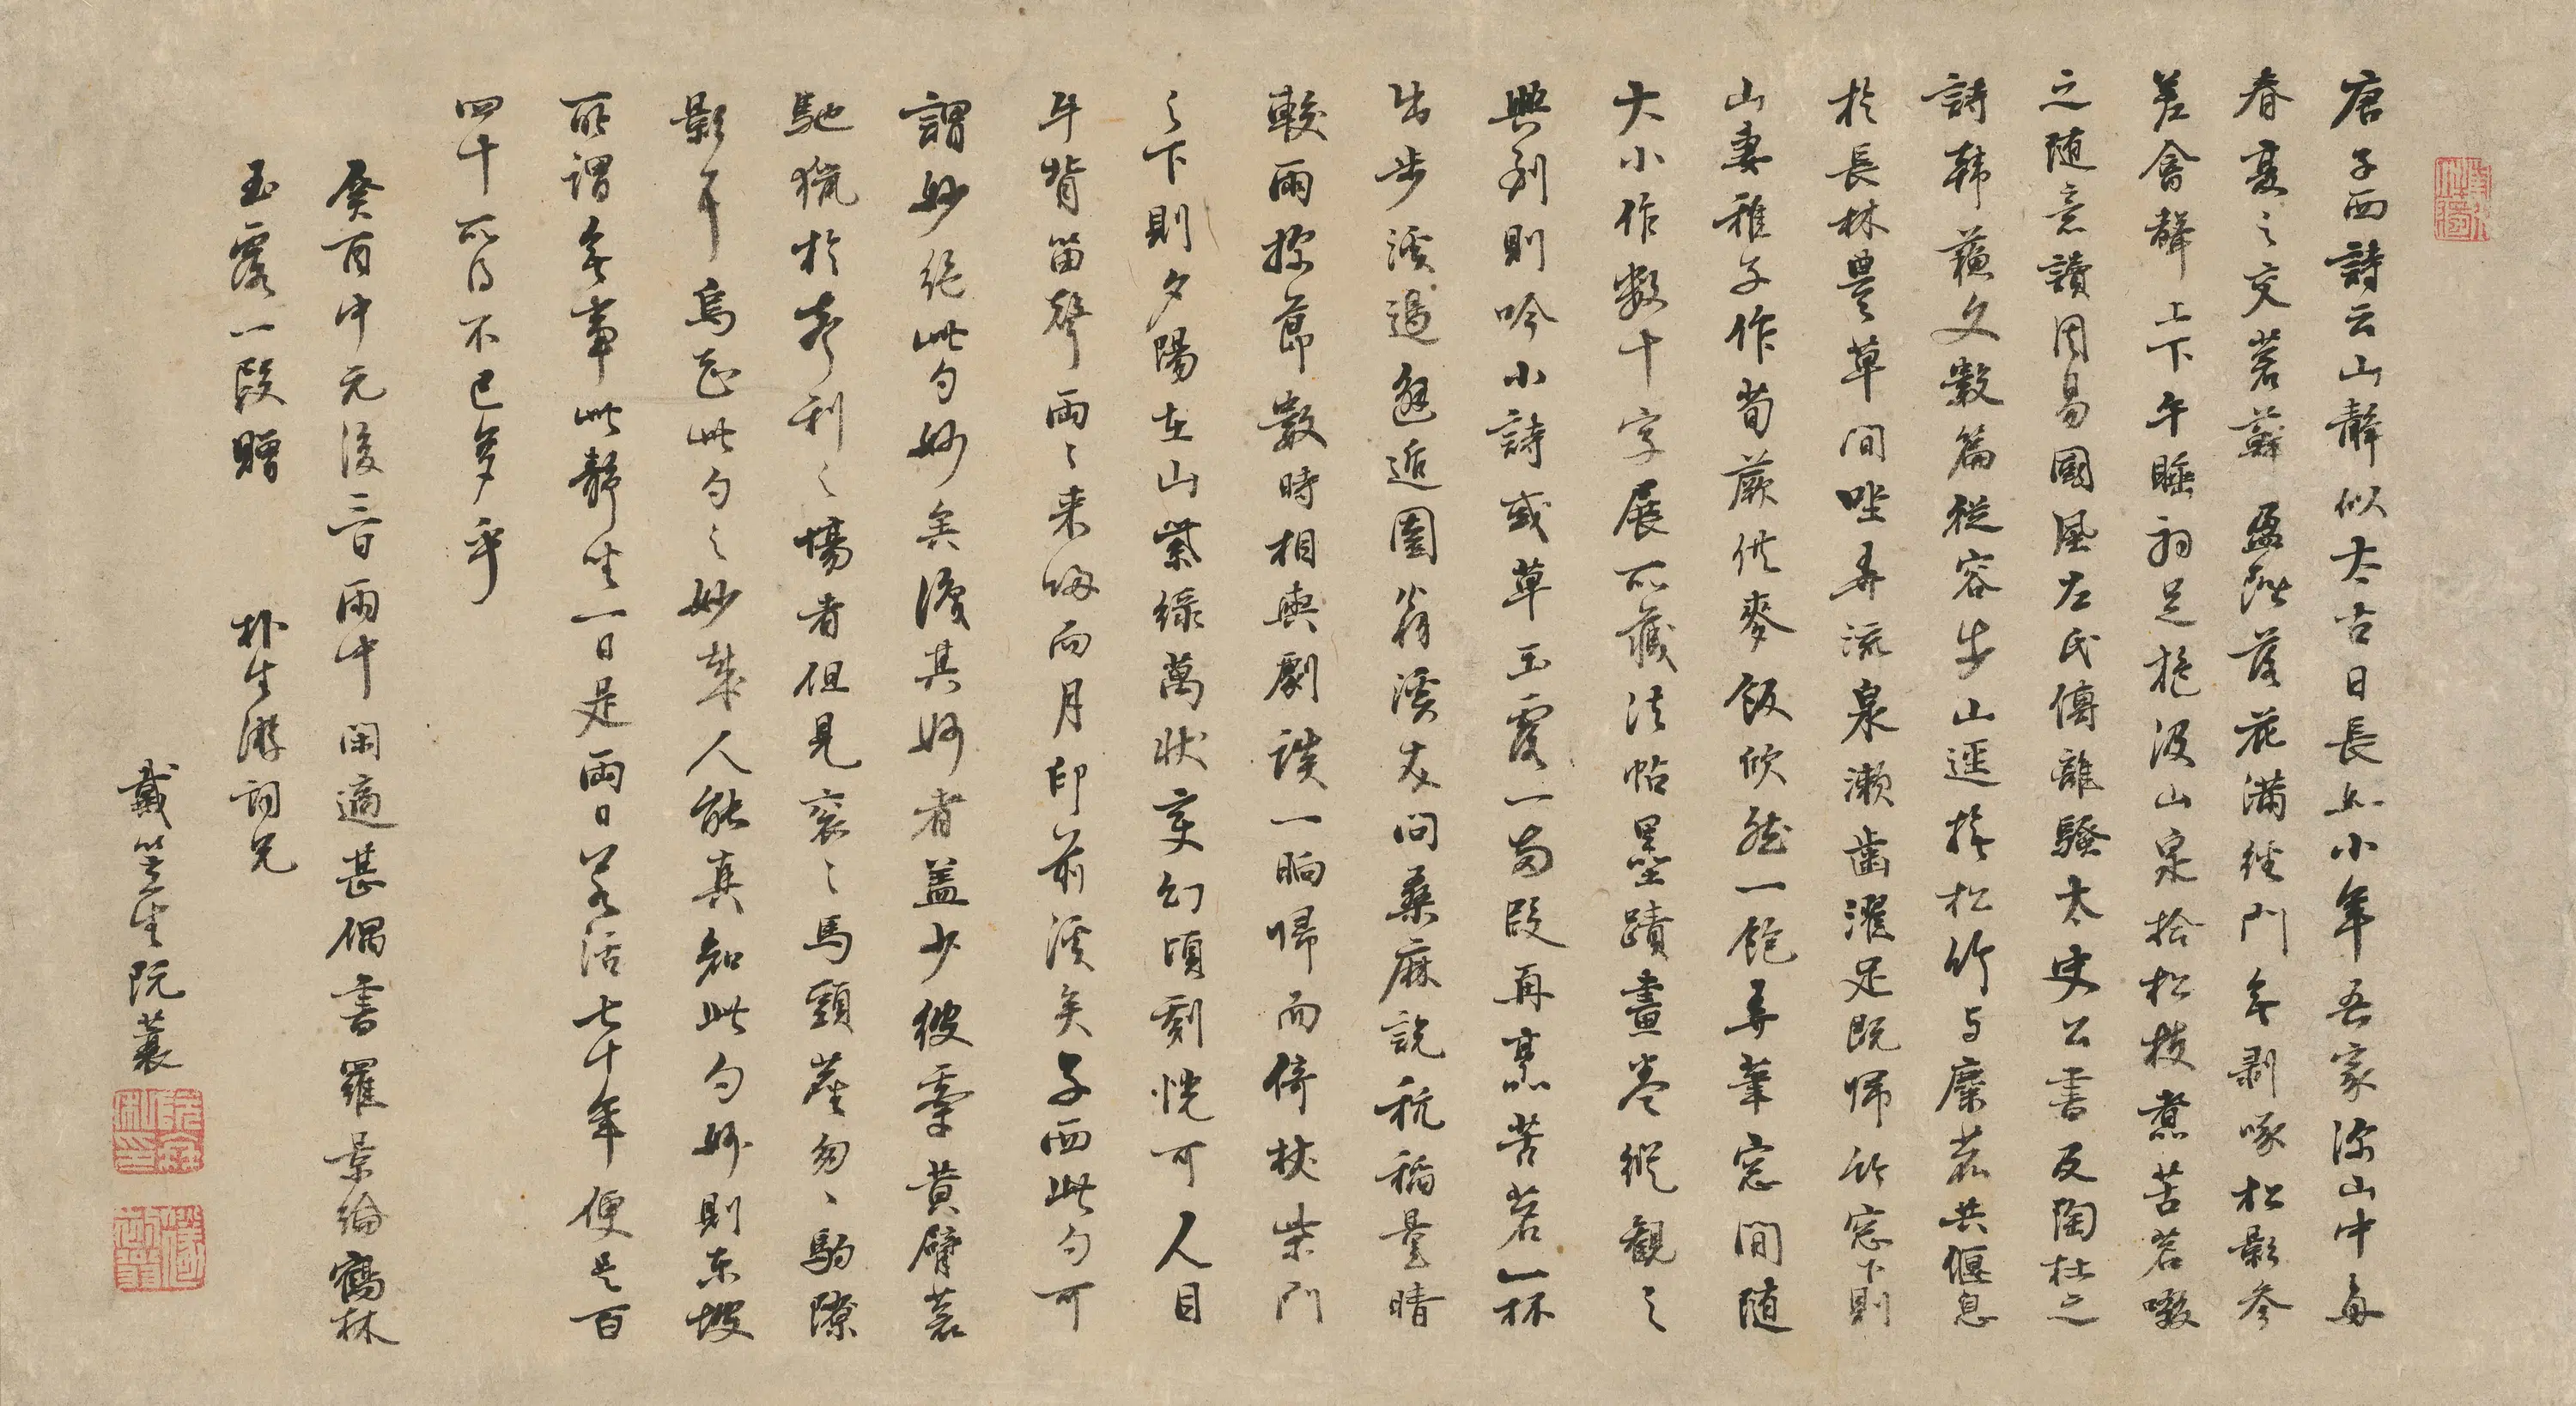 唐子西詩云山静似太古日長如小年吾家深山中每
春夏之交蒼蘚盈階落花滿徑門無剥啄松影參
差禽聲上下午睡初足旋汲山泉拾松枝煮苦茗啜
之随意讀周易國風左氏傳離騷太史公書及陶杜之
詩韓蘇文數篇從容步山逕撫松竹与麋麀共偃息
於長林豐草間坐弄流泉漱齒濯足既歸竹窓下則
山妻稚子作筍蕨供麥飯欣然一飽弄筆窓間随
大小作数十字展所藏法帖墨蹟畫卷縱觀之
興到則吟小詩或草玉露一兩段再烹苦茗一杯
出步溪邊邂逅園翁溪友問桑麻說秔稻量晴
較雨探節數時相與劇談一晌歸而倚杖柴門
之下則夕陽在山紫綠萬狀變幻頃刻恍可人目
牛背笛聲兩〻来歸而月印前溪矣子西此句可
謂妙絶此句妙矣識其妙者盖少彼牽黄臂蒼
馳獵於聲利之場者但見衮〻馬頭塵匆〻駒隙
影耳烏知此句之妙哉人能真知此句妙則東坡
所謂無事此静坐一日是兩日若活七十年便是百
四十所得不已多乎
癸酉中元後三日雨中閑適甚偶書羅景綸鶴林
玉露一段贈　朴生游詞兄
戴笠生阮蓑